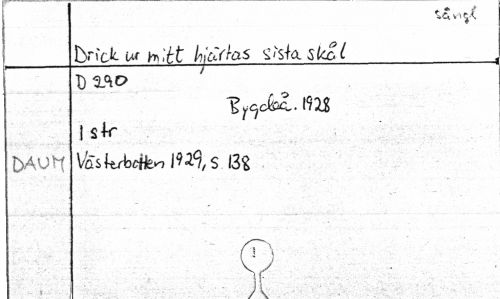 sångl
Drick ur mitt hjärtas sista skål
D 290
Bygdeå. 1928
1 str
DAUM Västerbotten 1929, s 138